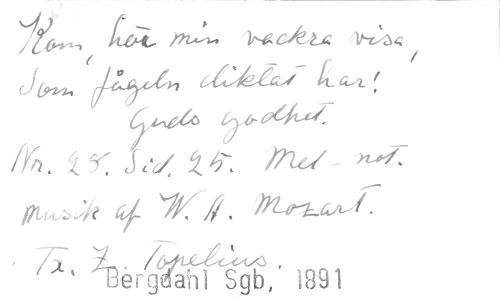 Kom, hör min vackra visa,
Som fågeln diktat har!
Guds godhet.
Nr. 28. Sid. 25. Mel - not.
musik af W. A. Mozart.
Tx. Z. Topelius.
Bergdahl Sgb, 1891